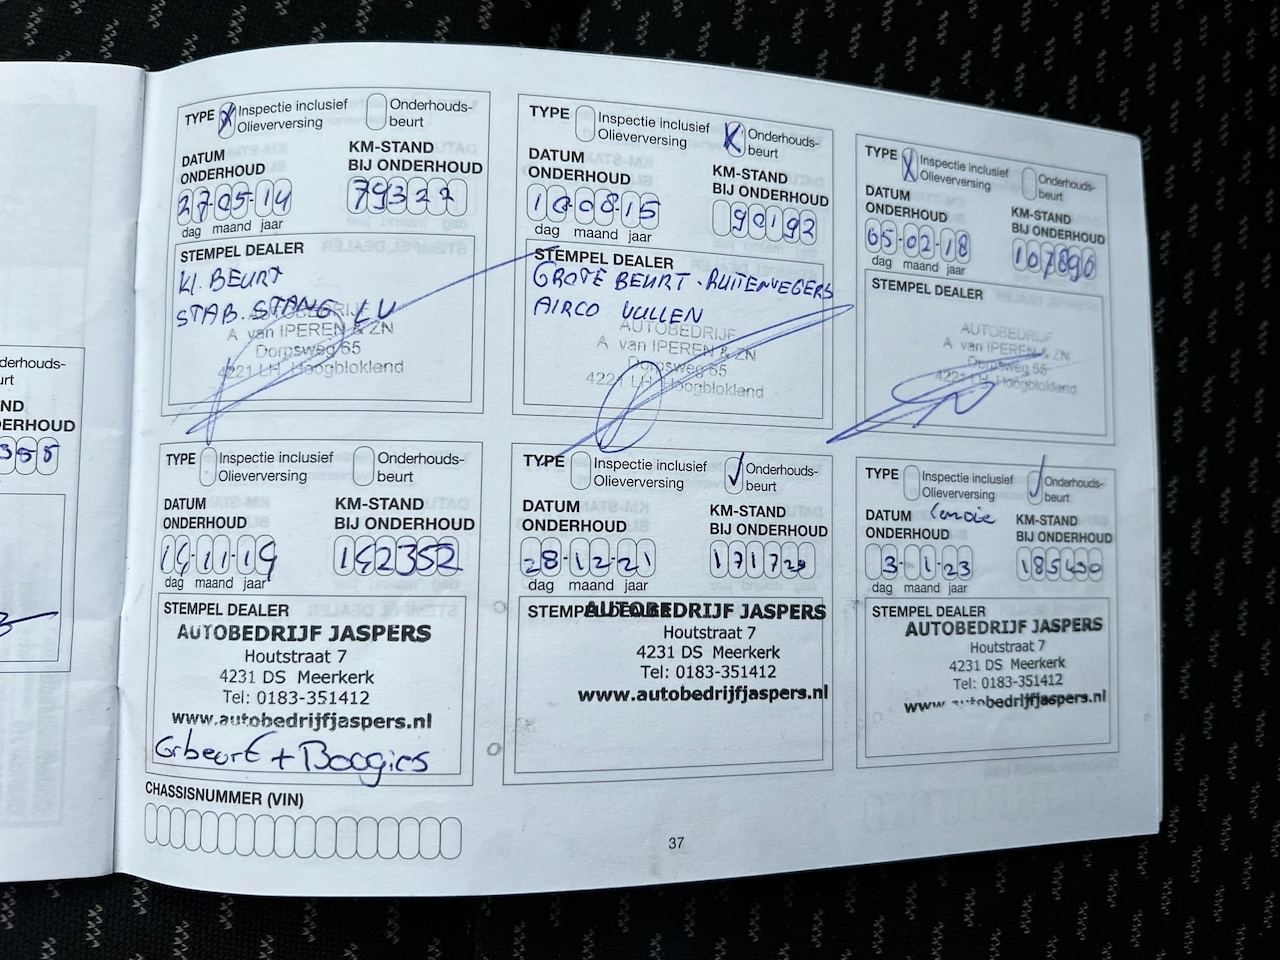 derhouds-
urt
AND
DERHOUD
355
TYPE X Inspectie inclusief Olieverversing
Onderhouds-beurt
DATUM ONDERHOUD
KM-STAND BIJ ONDERHOUD
27-05-14
79327
dag maand jaar
STEMPEL DEALER
Kl. BEURT
STAB. STANG LV
AUTOBEDRIJF
A van IPEREN & ZN
Dorpsweg 65
4221 LH Hoogblokland
TYPE Inspectie inclusief Olieverversing
X Onderhouds-beurt
DATUM ONDERHOUD
KM-STAND BIJ ONDERHOUD
10-08-15
90192
dag maand jaar
STEMPEL DEALER
GROTE BEURT - RUITENVEGERS
AIRCO VULLEN
AUTOBEDRIJF
A van IPEREN & ZN
Dorpsweg 65
4221 LH Hoogblokland
TYPE X Inspectie inclusief Olieverversing
Onderhouds-beurt
DATUM ONDERHOUD
KM-STAND BIJ ONDERHOUD
05-02-18
107890
dag maand jaar
STEMPEL DEALER
AUTOBEDRIJF
A van IPEREN & ZN
Dorpsweg 65
4221 LH Hoogblokland
TYPE Inspectie inclusief Olieverversing
Onderhouds-beurt
DATUM ONDERHOUD
KM-STAND BIJ ONDERHOUD
14-11-19
142352
dag maand jaar
STEMPEL DEALER
AUTOBEDRIJF JASPERS
Houtstraat 7
4231 DS Meerkerk
Tel: 0183-351412
www.autobedrijfjaspers.nl
Grbeurt + Boogies
TYPE Inspectie inclusief Olieverversing
Onderhouds-beurt
DATUM ONDERHOUD
KM-STAND BIJ ONDERHOUD
28-12-21
171720
dag maand jaar
STEMPEL DEALER
AUTOBEDRIJF JASPERS
Houtstraat 7
4231 DS Meerkerk
Tel: 0183-351412
www.autobedrijfjaspers.nl
TYPE Inspectie inclusief Olieverversing
Onderhouds-beurt
DATUM ONDERHOUD
KM-STAND BIJ ONDERHOUD
3-1-23
185430
dag maand jaar
STEMPEL DEALER
AUTOBEDRIJF JASPERS
Houtstraat 7
4231 DS Meerkerk
Tel: 0183-351412
www.autobedrijfjaspers.nl
CHASSISNUMMER (VIN)
37